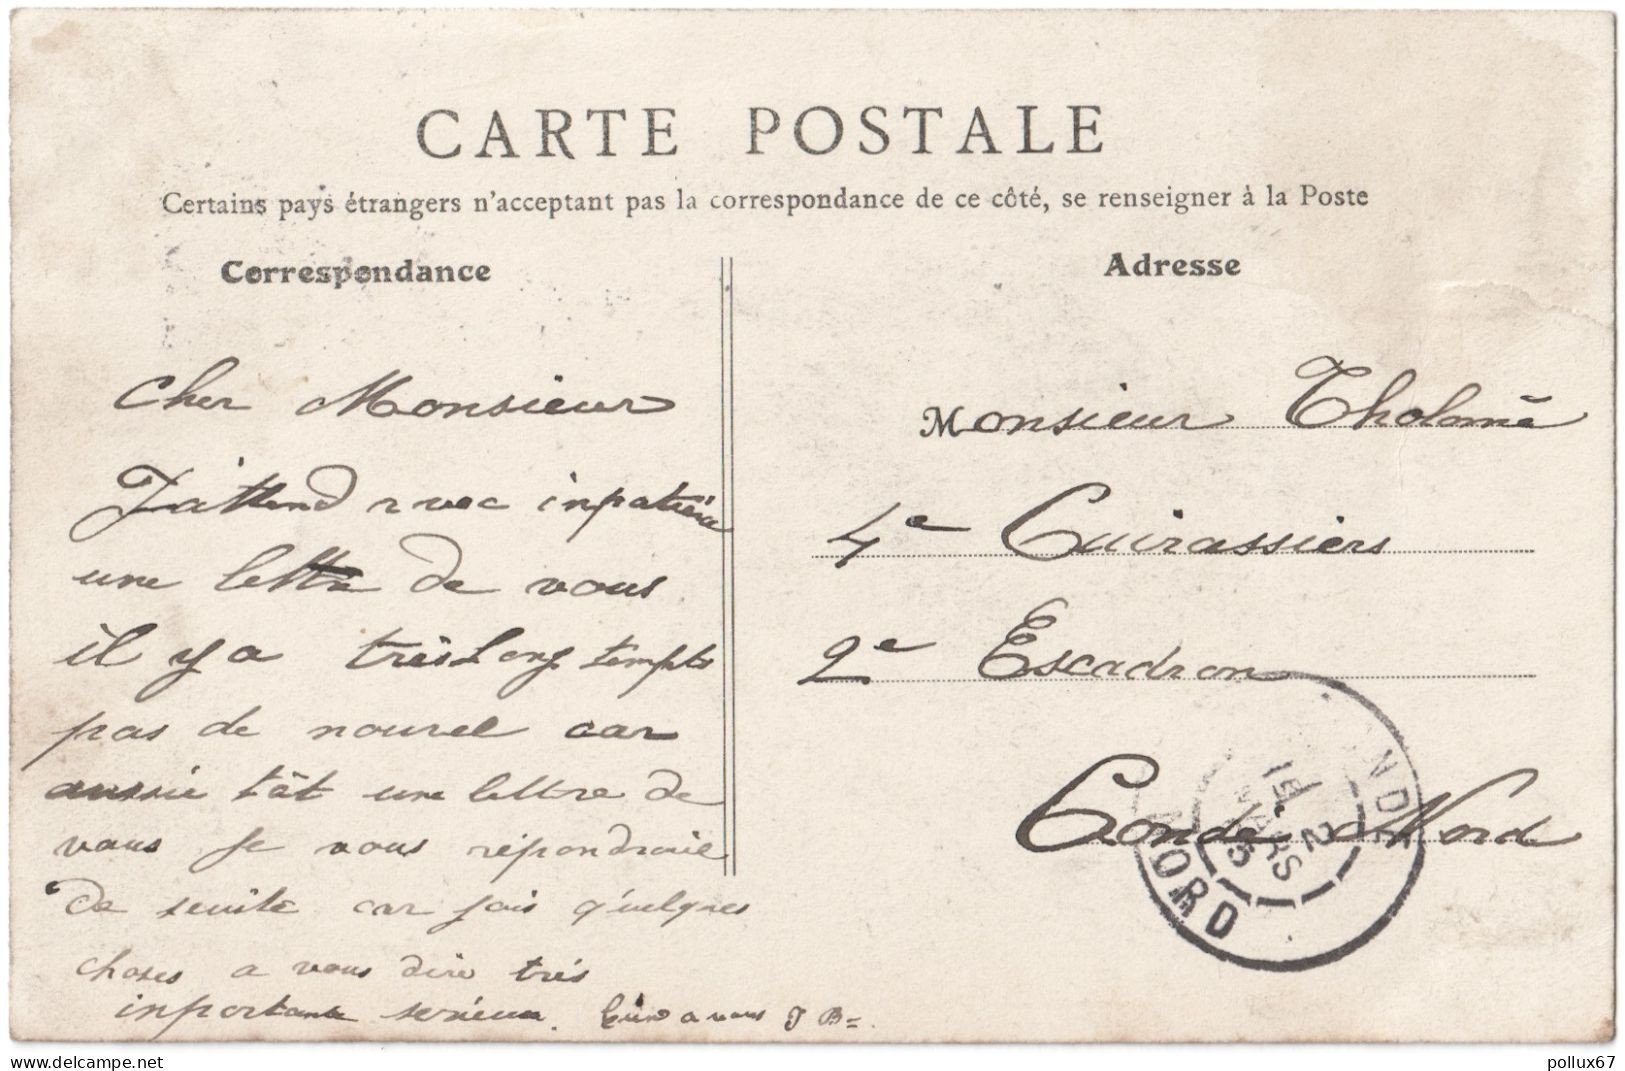 CARTE POSTALE
Certains pays étrangers n'acceptant pas la correspondance de ce côté, se renseigner à la Poste
Correspondance
Adresse
Cher Monsieur
J'attend avec inpatience
une lettre de vous
il y a très Long temps
pas de nouvel car
aussie tât une lettre de
vous je vous répondraie
de seuite car jais q'uelques
choses a vous dire très
inportante serieux. a vous J B=.
Monsieur Tholomé
4e Cuirassiers
2e Escadron
Condé Nord
NORD
www.delcampe.net
pollux67